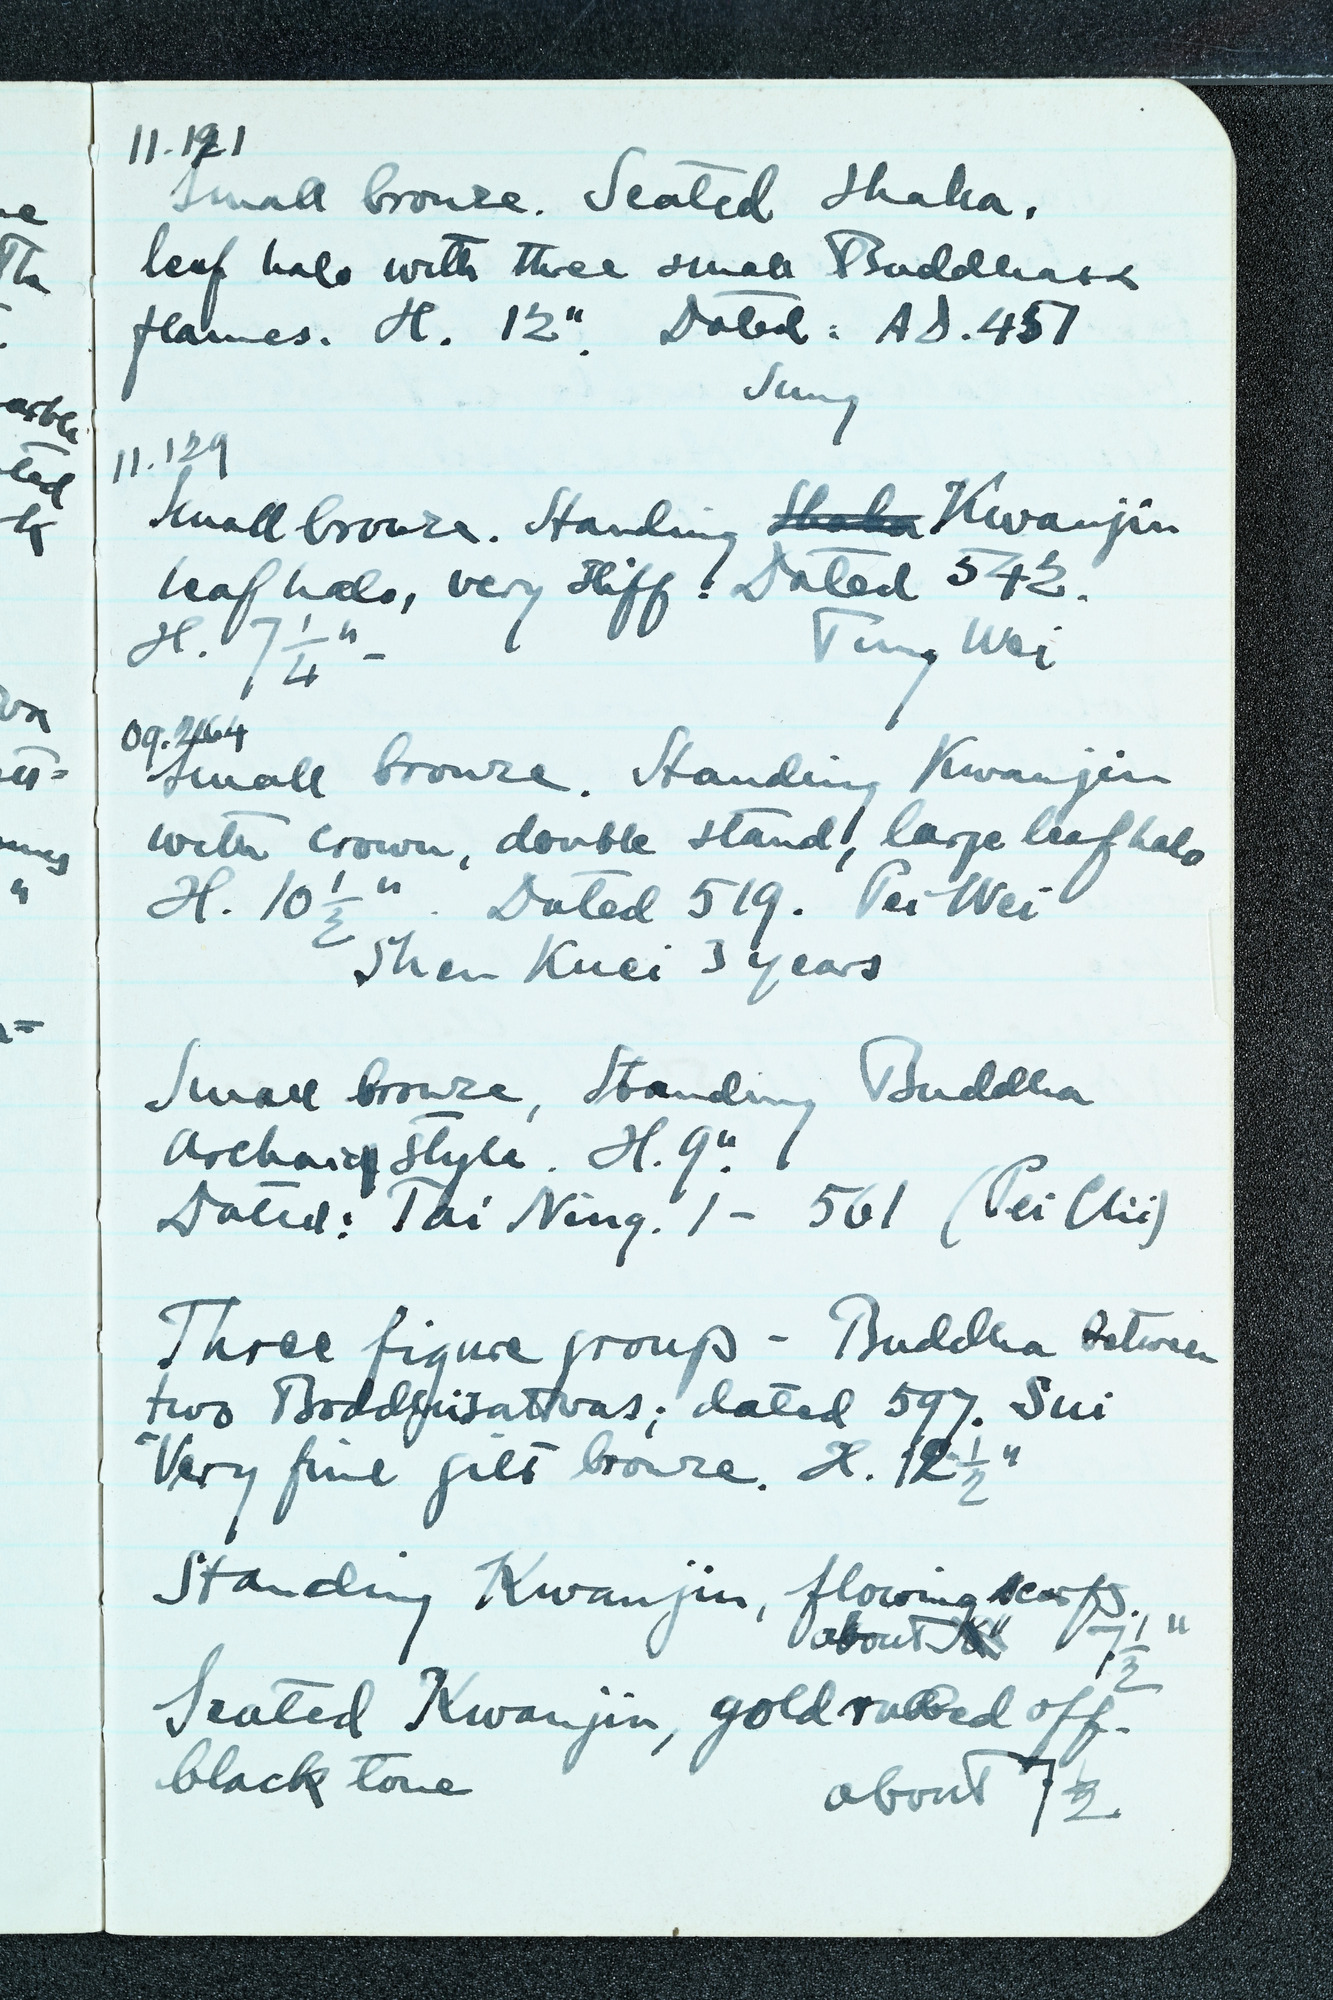 11.121
Small bronze. Seated Shaka.
leaf halo with three small Buddhas &
flames. H. 12". Dated: A D. 451
Sung
11.129
Small bronze. Standing Shaka Kwanjin
leaf halo, very stiff. Dated 542.
H. 7 1/4" -
Tung Wei
09.264
Small bronze. Standing Kwanjin
with crown, double stand, large leaf halo
H. 10 1/2". Dated 519. Pei Wei
Shen Kuei 3 years
Small bronze, Standing Buddha
Archaic style. H. 9".
Dated: Tai Ning. 1 - 561 (Pei Chi)
Three figure group - Buddha between
two Boddhisattvas; dated 597. Sui
Very fine gilt bronze. H. 12 1/2"
Standing Kwanjin, flowing scarfs.
about 7 1/2"
Seated Kwanjin, gold rubbed off.
black tone about 7 1/2